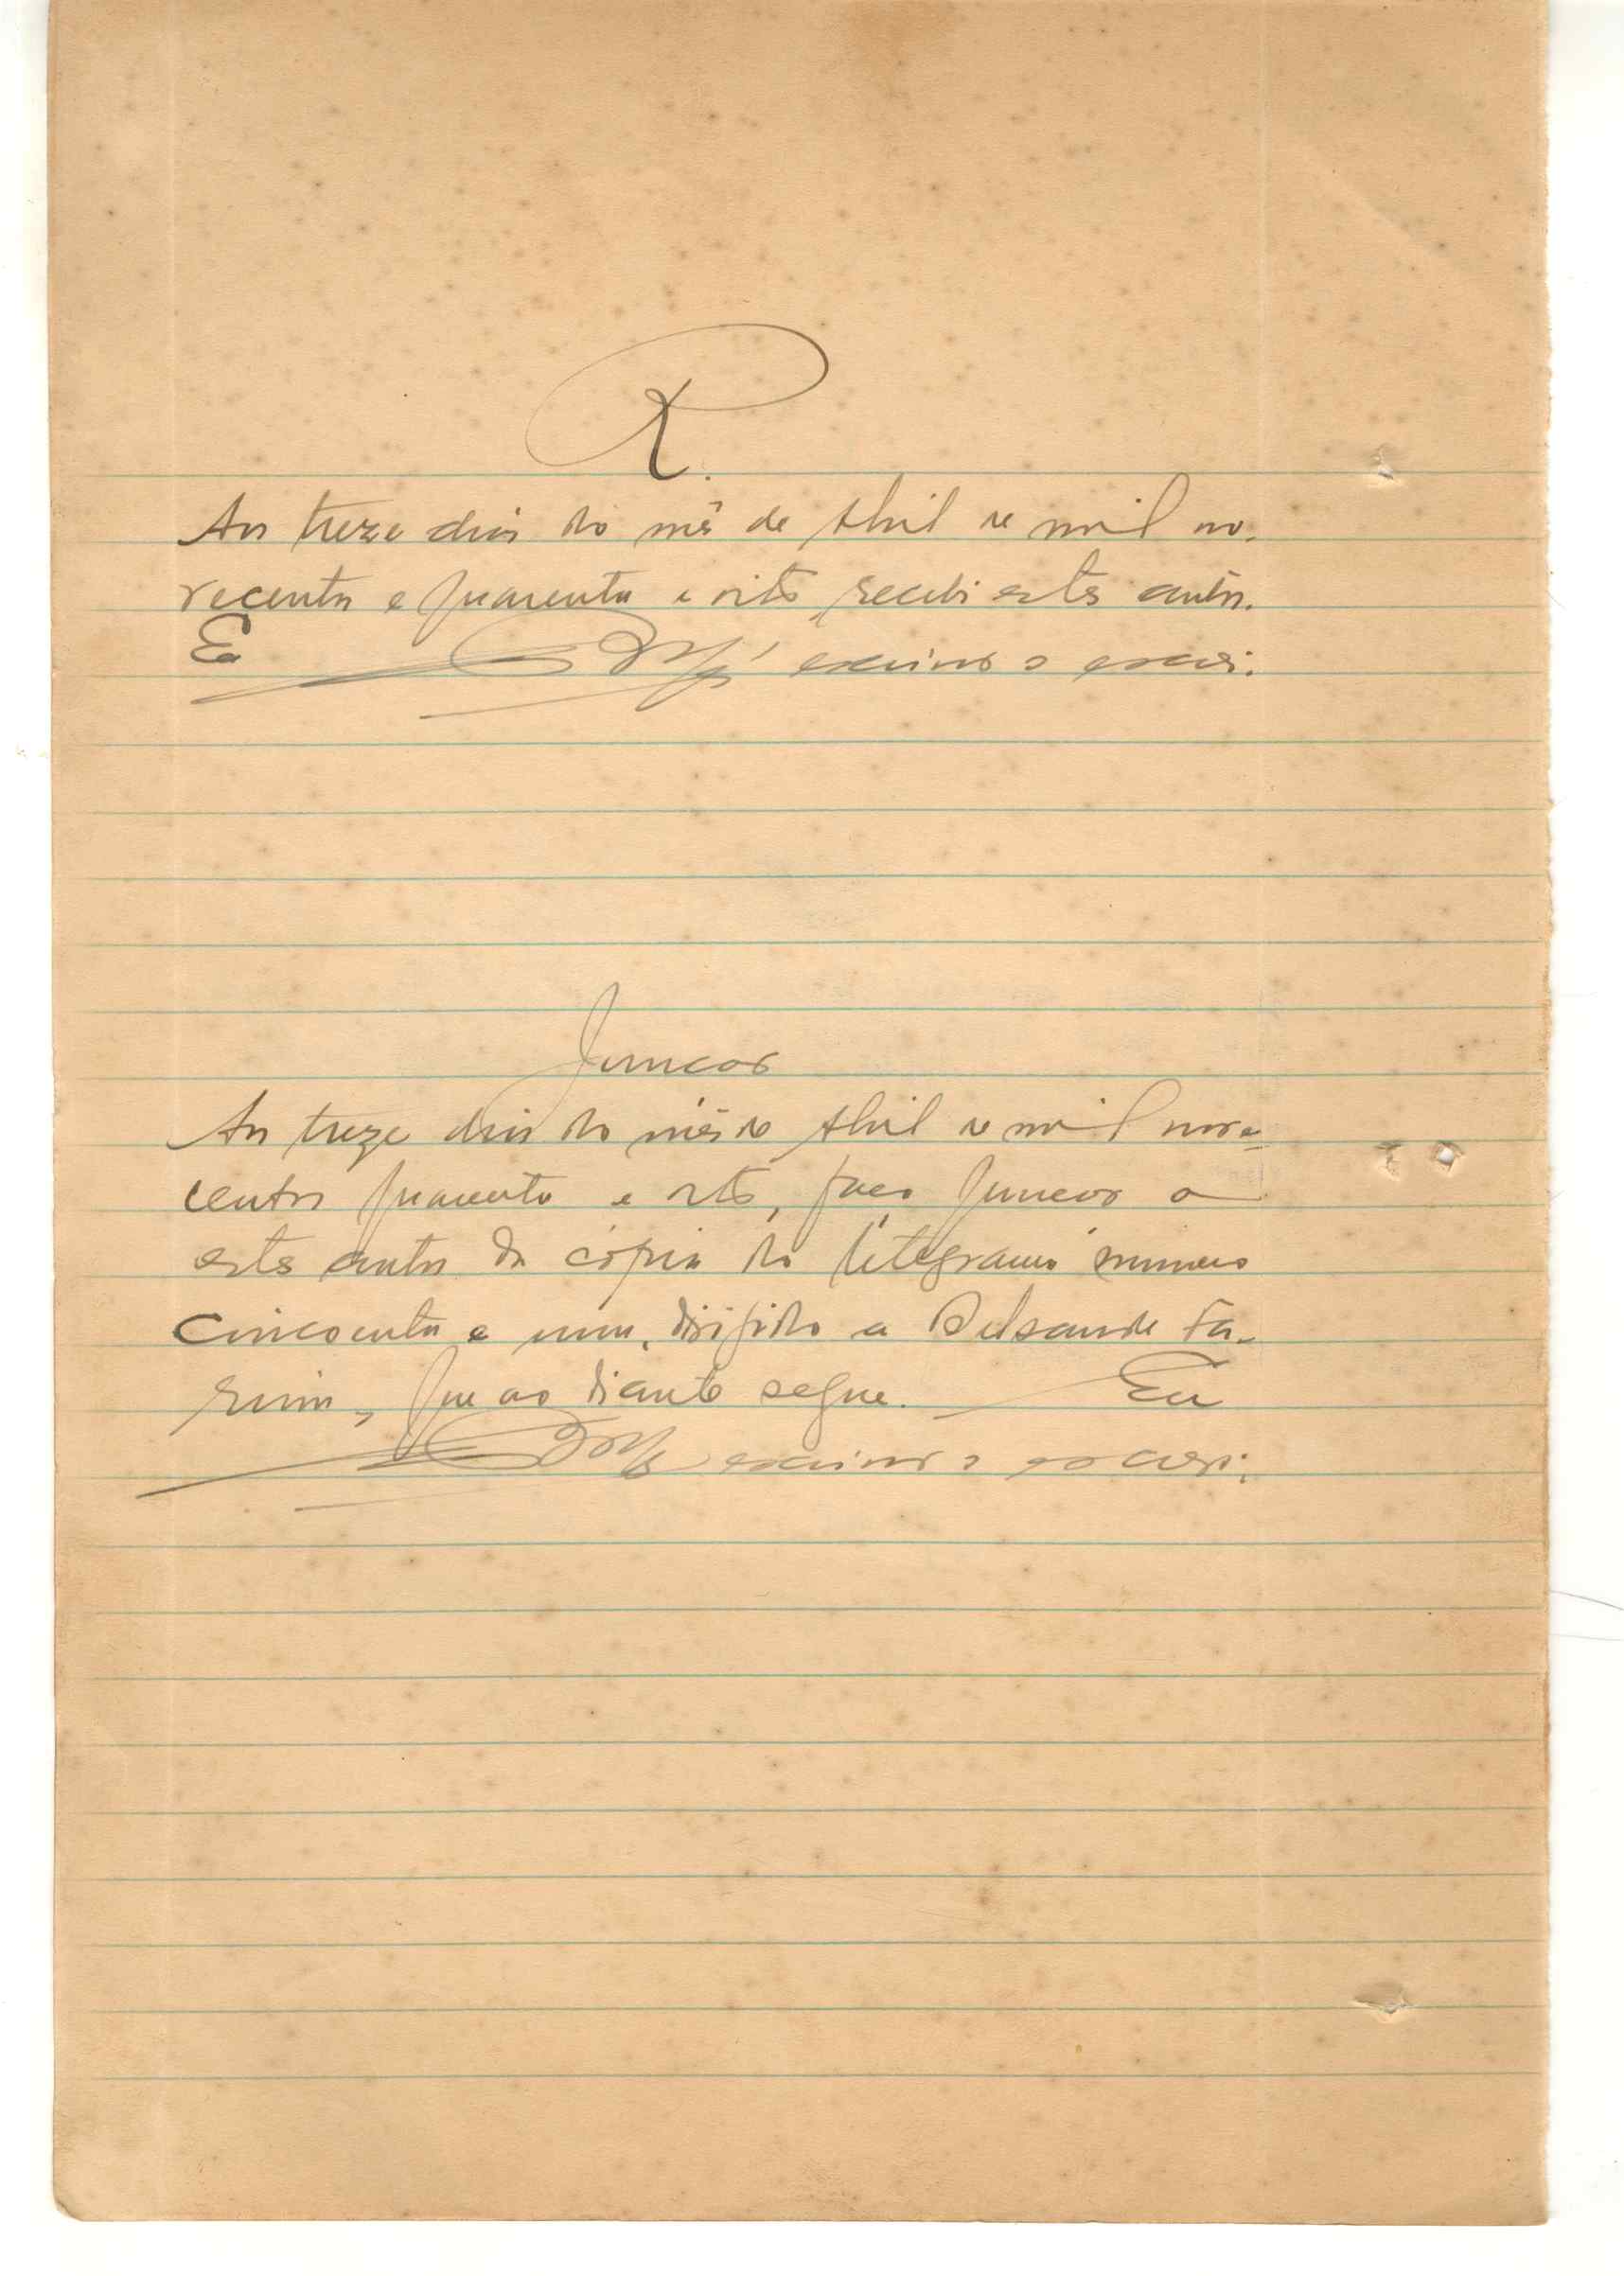 R.
Aos treze dias do mês de Abril de mil no-
vecentos e quarenta e oito, recebi estes autos.
Eu escrivão o escrevi.
Juncão
Aos treze dias do mês de Abril de mil nove-
centos quarenta e oito, faço juncão a
estes autos da cópia do telegrama número
cincoenta e um, dirigido a
que ao diante segue. Eu
escrivão o escrevi.